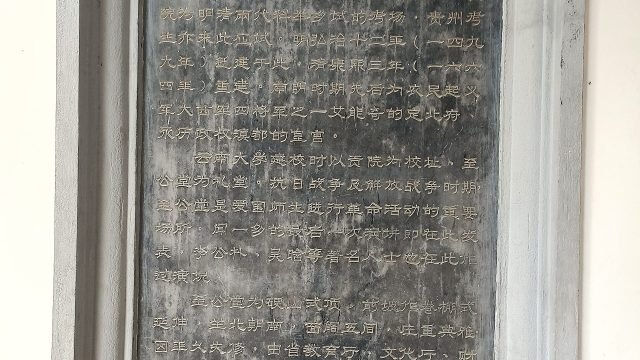 院为明清两代科举乡试的考场，贵州考
生亦来此应试。明弘治十二年（一四九
九年）始建于此，清康熙三年（一六六
四年）重建。南明时期先后为农民起义
军大西军四将军之一艾能奇的定北府、
永历政权滇都的皇宫。
云南大学建校时以贡院为校址，至
公堂为礼堂。抗日战争及解放战争时期
至公堂是爱国师生进行革命活动的重要
场所。闻一多的最后一次演讲即在此发
表，李公朴、吴晗等著名人士也在此作
过演说。
至公堂为硬山式顶，前
延伸，坐北朝南，面阔五间，庄重典雅。
因年久失修，由省教育厅、文化厅、